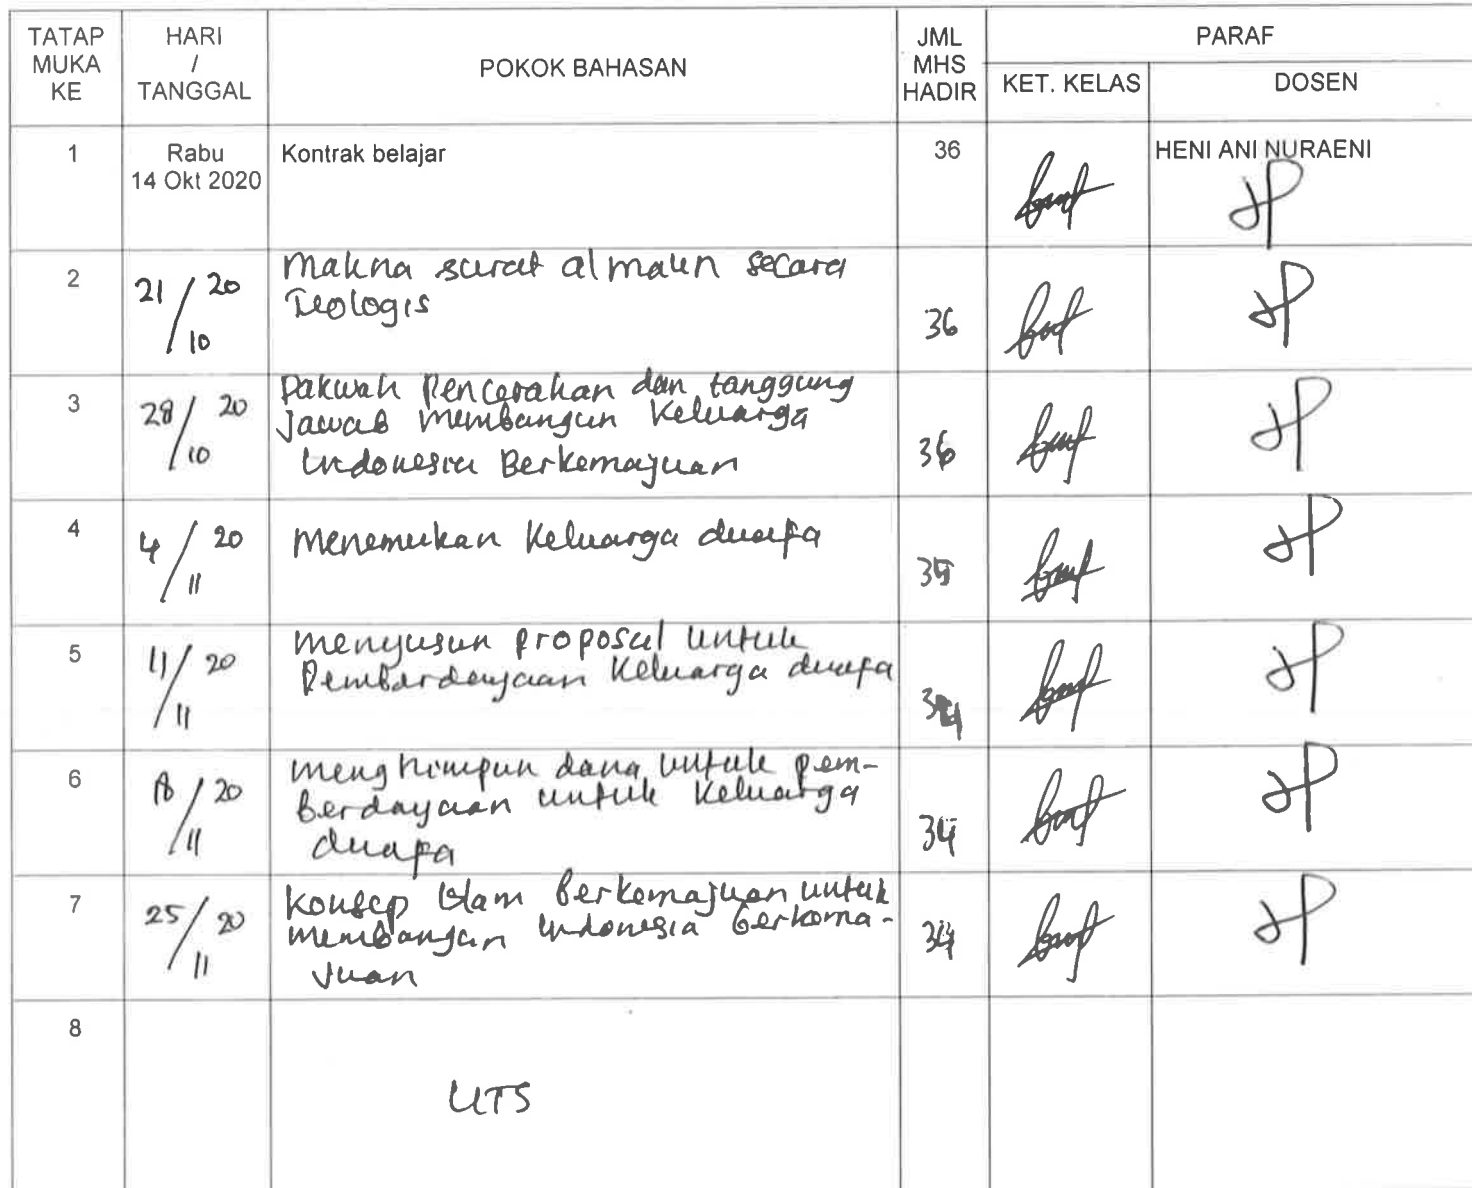 TATAP MUKA KE
HARI / TANGGAL
POKOK BAHASAN
JML MHS HADIR
PARAF
KET. KELAS
DOSEN
1
Rabu
14 Okt 2020
Kontrak belajar
36
HENI ANI NURAENI
2
21/10 20
Makna surat al maun secara
Teologis
36
3
28/10 20
Dakwah Pencerahan dan tanggung
Jawab Membangun Keluarga
Indonesia Berkemajuan
36
4
4/11 20
Menemukan Keluarga duafa
35
5
11/11 20
menyusun proposal untuk
Pemberdayaan Keluarga duafa
6
18/11 20
menghimpun dana untuk pem-
Berdayaan untuk Keluarga
duafa
34
7
25/11 20
Konsep Islam Berkemajuan untuk
membangun Indonesia Berkema-
Juan
34
8
UTS